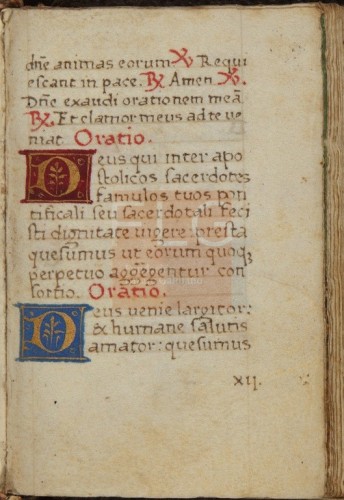 dñe animas eorum ℣ Requi
escant in pace. ℟ Amen ℣.
Dñe exaudi orationem meã
℟. Et clamor meus ad te ve
niat Oratio.
Deus qui inter apo
stolicos sacerdotes
famulos tuos pon
tificali seu sacerdotali feci
sti dignitate vigere: presta
quesumus ut eorum quoqꝫ
perpetuo aggregentur con
sortio. Oratio.
Deus venie largitor:
& humane salutis
amator: quesumus
xij.